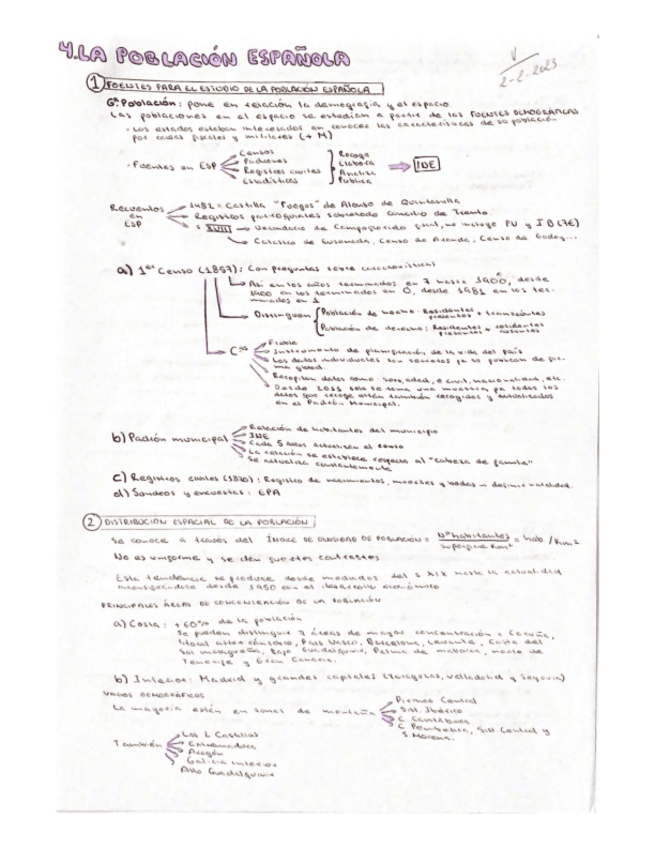 4. LA POBLACIÓN ESPAÑOLA
V
2-2-2023
1 FUENTES PARA EL ESTUDIO DE LA POBLACIÓN ESPAÑOLA
Gª Población: pone en relación la demografía y el espacio.
Las poblaciones en el espacio se estudian a partir de las FUENTES DEMOGRÁFICAS
- Los estados estaban interesados en conocer las características de su población
por causas fiscales y militares (+ M)
- Fuentes en ESP
Censos
Padrones
Registros civiles
Estadísticas
Recoge
Elabora
Analiza
Publica
INE
Recuentos en ESP
1482 = Castilla "Fuegos" de Alonso de Quintanilla
Registros parroquiales sobretodo concilio de Trento.
s XVIII → Vecindario de Campoflorido gral, no incluye PV y I B (7E)
→ Catastro de Ensenada, Censo de Aranda, Censo de Godoy...
a) 1er Censo (1857): Con preguntas sobre características
Así en los años terminados en 7 hasta 1900, desde
1900 en los terminados en 0, desde 1981 en los ter-
minados en 1
Distinguen
Población de hecho: Residentes presentes + transeúntes
Población de derecho: Residentes presentes + residentes ausentes
Cas
Fiable
Instrumento de planificación de la vida del país
Los datos individuales son secretos ya se publican de for-
ma global.
Recopilan datos como sexo, edad, e. civil, nacionalidad, etc.
Desde 2011 solo se toma una muestra, pq todos los
datos que recoge están también recogidos y actualizados
en el Padrón Municipal.
b) Padrón municipal
Relación de habitantes del municipio
INE
Cada 5 años actualizan el censo
La relación se establece respecto al "cabeza de familia"
Se actualiza constantemente
c) Registros civiles (1870): Registro de nacimientos, muertes y bodas
d) Sondeos y encuestas: EPA
2 DISTRIBUCIÓN ESPACIAL DE LA POBLACIÓN
Se conoce a través del ÍNDICE DE DENSIDAD DE POBLACIÓN = Nº habitantes / superficie Km² = hab / Km²
No es uniforme y se dan fuertes contrastes
Esta tendencia se produce desde mediados del s XIX hasta la actualidad
intensificándose desde 1950 con el desarrollo económico
PRINCIPALES ÁREAS DE CONCENTRACIÓN DE LA POBLACIÓN
a) Costa: +60% de la población
Se pueden distinguir 7 áreas de mayor concentración = Coruña,
litoral astur-cántabro, País Vasco, Barcelona, Levante, Costa del
Sol malagueña, Bajo Guadalquivir, Palma de Mallorca, norte de
Tenerife y Gran Canaria.
b) Interior: Madrid y grandes capitales (Zaragoza, Valladolid y Segovia)
VACÍOS DEMOGRÁFICOS
La mayoría están en zonas de montaña
Pirineo Central
Sist. Ibérico
C. Cantábrica
C. Penibética, Sist Central y
S. Morena.
También
Las 2 Castillas
Extremadura
Aragón
Galicia interior
Alto Guadalquivir